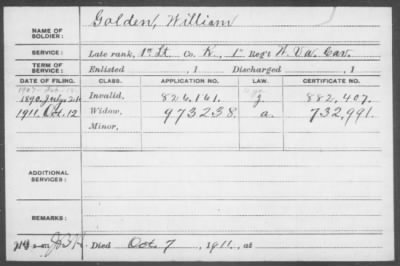 NAME OF SOLDIER: Golden, William
SERVICE: Late rank, 1st Lt Co. K, 1 Reg't W. Va. Cav.
TERM OF SERVICE: Enlisted , 1 Discharged , 1
DATE OF FILING. CLASS. APPLICATION NO. LAW. CERTIFICATE NO.
1890. July 21 Invalid, 826,161. j. 882,407.
1911. Oct. 12 Widow, 973238. a. 732,991.
Minor,
ADDITIONAL SERVICES:
REMARKS:
Died Oct. 7, 1911, at